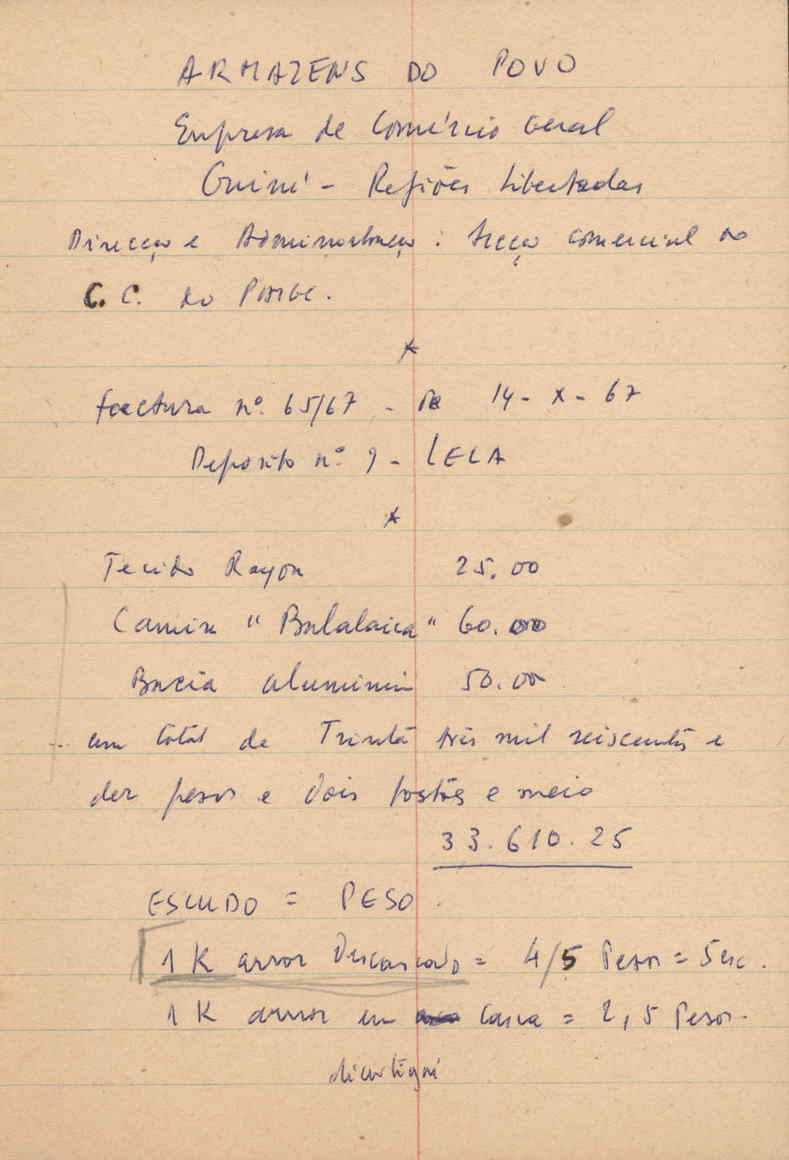 ARMAZENS DO POVO
Empresa de Comércio Geral
Guiné - Regiões Libertadas
Direcção e Administração: Secção comercial do
C.C. do PAIGC.
*
Factura nº. 65/67 - de 14 - X - 67
Deposito nº. 9 - LELA
*
Tecido Rayon 25.00
Camisa "Balalaica" 60.00
Bacia aluminium 50.00
um total de Trinta três mil seiscentos e
dez pesos e dois tostões e meio
33.610.25
ESCUDO = PESO.
1 K arroz Descascado = 4/5 Pesos = 5 esc.
1 K arroz em casca = 2,5 Pesos.